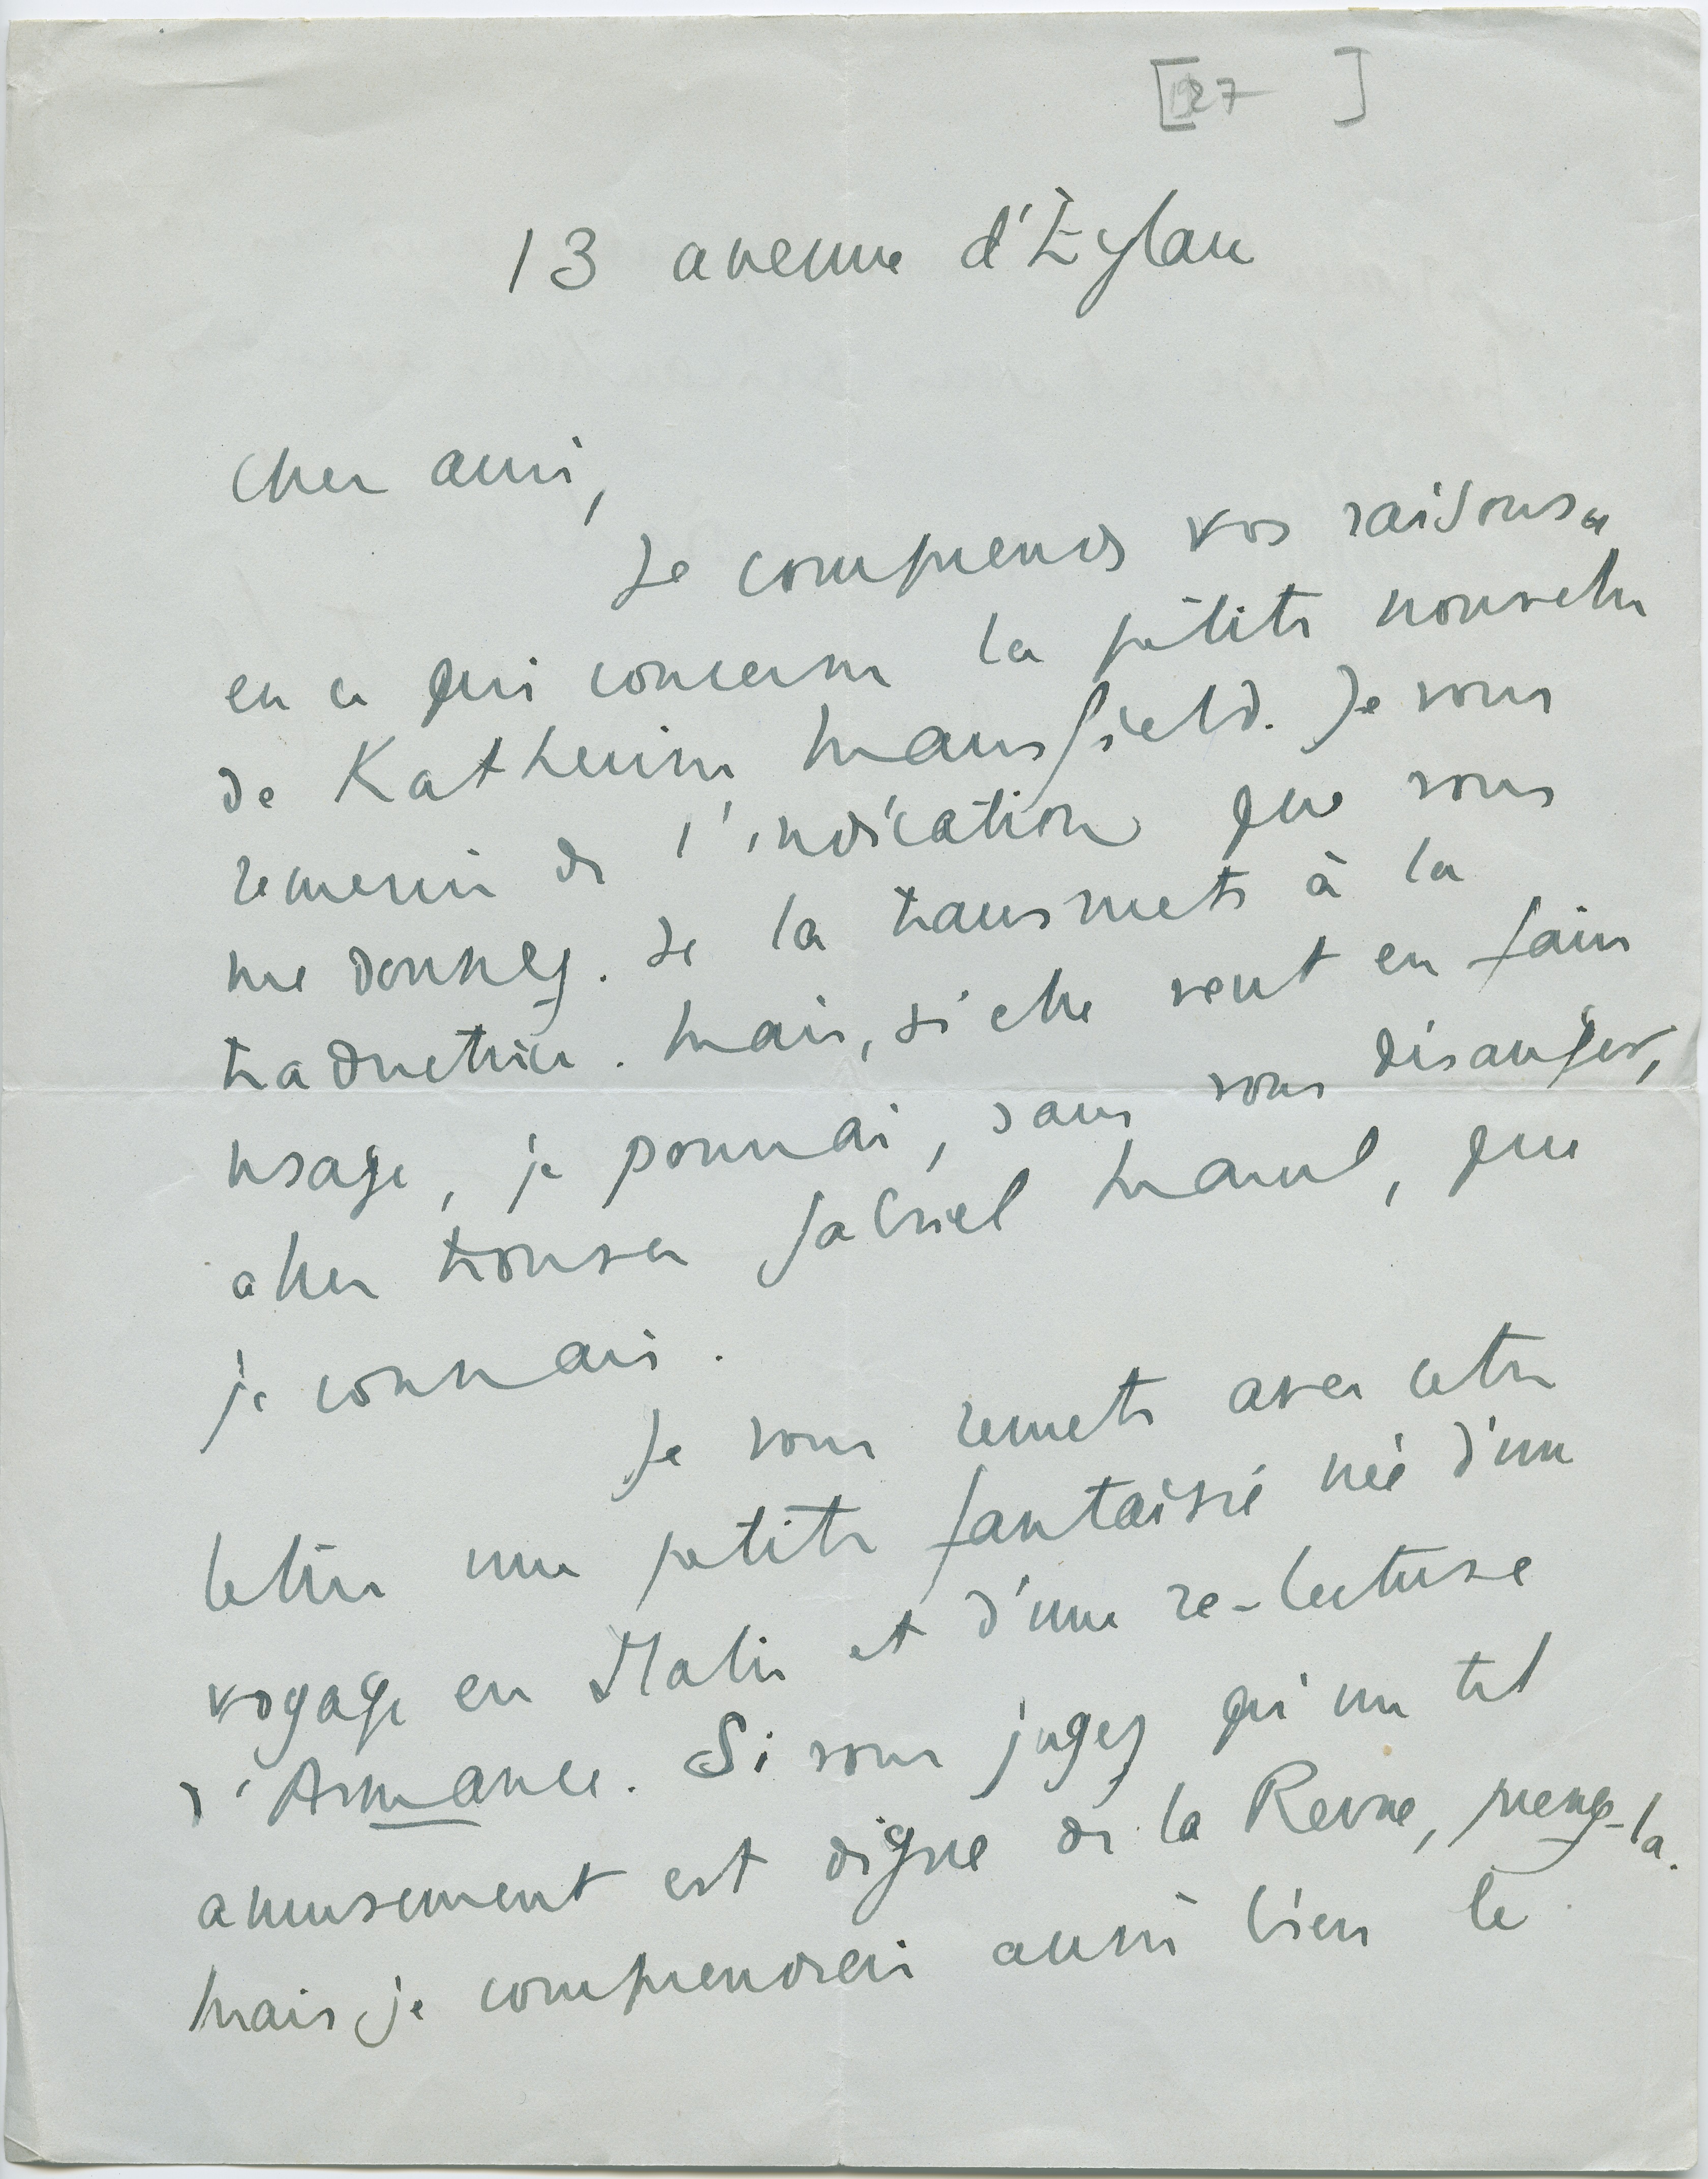 [1927 ]
13 avenue d'Eylau
Cher ami,
Je comprends vos raisons
en ce qui concerne la petite nouvelle
de Katherine Mansfield. Je vous
remercie de l'indication que vous
me donnez. Je la transmets à la
traductrice. Mais, si elle veut en faire
usage, je pourrai, sans vous déranger,
aller trouver Gabriel Marcel, que
je connais.
Je vous remets avec cette
lettre une petite fantaisie née d'un
voyage en Italie et d'une re-lecture
d'Armance. Si vous jugez qu'un tel
amusement est digne de la Revue, prenez-la.
Mais je comprendrai aussi bien le